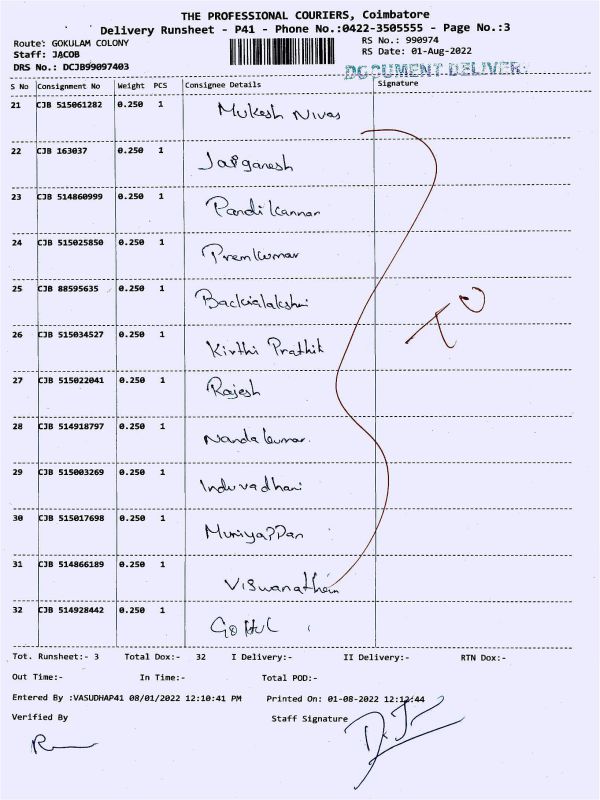 THE PROFESSIONAL COURIERS, Coimbatore
Delivery Runsheet - P41 - Phone No.:0422-3505555 - Page No.:3
Route: GOKULAM COLONY RS No.: 990974
Staff: JACOB RS Date: 01-Aug-2022
DRS No.: DCJB99097403 DOCUMENT DELIVERY
S No Consignment No Weight PCS Consignee Details Signature
21 CJB 515061282 0.250 1 Mukesh Nivas
22 CJB 163037 0.250 1 Jaiganesh
23 CJB 514860999 0.250 1 Pandi Kannan
24 CJB 515025850 0.250 1 Premkumar
25 CJB 88595635 0.250 1 Backialakshmi
26 CJB 515034527 0.250 1 Kirthi Prathik
27 CJB 515022041 0.250 1 Rajesh
28 CJB 514918797 0.250 1 Nanda kumar
29 CJB 515003269 0.250 1 Induvadhani
30 CJB 515017698 0.250 1 Muniyappan
31 CJB 514866189 0.250 1 Viswanathan
32 CJB 514928442 0.250 1 Gokul
Tot. Runsheet:- 3 Total Dox:- 32 I Delivery:- II Delivery:- RTN Dox:-
Out Time:- In Time:- Total POD:-
Entered By :VASUDHAP41 08/01/2022 12:10:41 PM Printed On: 01-08-2022 12:12:44
Verified By Staff Signature